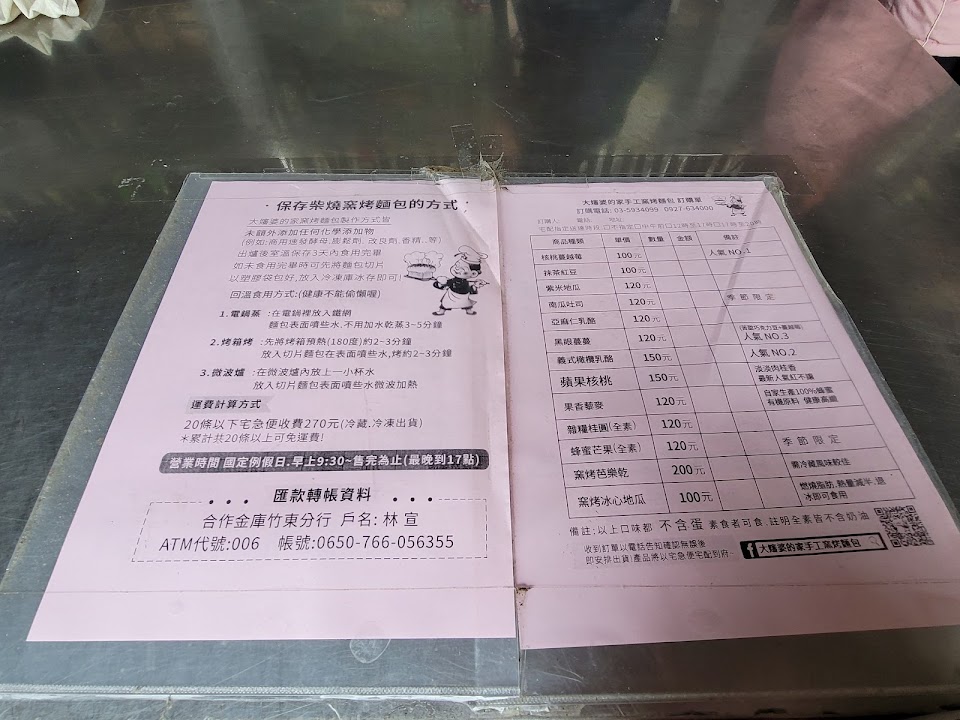 保存柴燒窯烤麵包的方式
大爐婆的家窯烤麵包製作方式皆
未額外添加任何化學添加物
(例如:商用速發酵母.膨鬆劑. 改良劑.香精..等)
出爐後室溫保存3天內食用完畢
如未食用完畢時可先將麵包切片
以塑膠袋包好,放入冷凍庫冰存即可!
回溫食用方式:(健康不能偷懶喔)
1.電鍋蒸 :在電鍋裡放入鐵網
麵包表面噴些水.不用加水乾蒸3~5分鐘
2.烤箱烤 :先將烤箱預熱(180度)約2~3分鐘
放入切片麵包在表面噴些水,烤約2~3分鐘
3.微波爐 :在微波爐內放上一小杯水
放入切片麵包表面噴些水微波加熱
運費計算方式
20條以下宅急便收費270元(冷藏.冷凍出貨)
*累計共20條以上可免運費!
營業時間 國定例假日.早上9:30~售完為止(最晚到17點)
匯款轉帳資料
合作金庫竹東分行 戶名: 林 宣
ATM代號:006 帳號:0650-766-056355
大爐婆的家手工窯烤麵包 訂購單
訂購電話: 03-5934099 0927-634000
訂購人: 電話: 地址:
商品種類 單價 數量 金額 備註
核桃蔓越莓 100元 人氣 NO.1
抹茶紅豆 100元
紫米地瓜 120元
南瓜吐司 120元 季節限定
亞麻仁乳酪 120元
黑眼蔓蔓 120元 人氣 NO.3
義式橄欖乳酪 150元 人氣 NO.2
蘋果核桃 150元 淡淡肉桂香
最新人氣紅不讓
果香藜麥 120元 自家生產100%蜂蜜
有機原料 健康高纖
雜糧桂圓(全素) 120元
蜂蜜芒果(全素) 120元 季節限定
窯烤芭樂乾 200元 需冷藏風味較佳
窯烤冰心地瓜 100元 燃燒脂肪.熱量減半.退
冰即可食用
備註:以上口味都 不含蛋 素食者可食.註明全素皆不含奶油
收到訂單以電話告知確認無誤後
即安排出貨!產品將以宅急便宅配到府~
大爐婆的家手工窯烤麵包